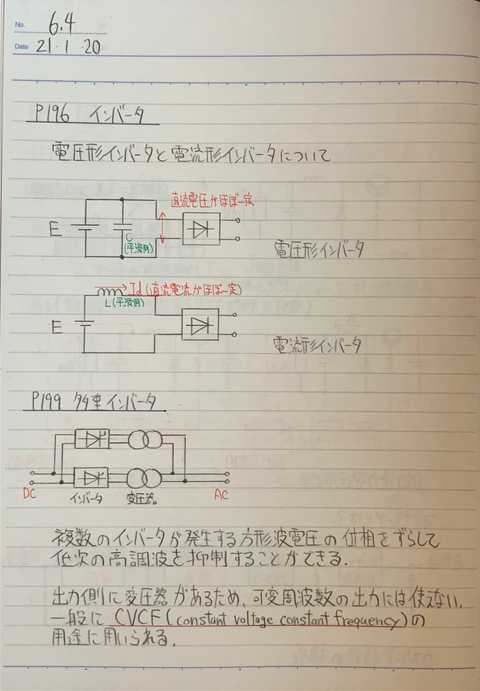 No. 6.4
Date 21・1・20
P196 インバータ
電圧形インバータと電流形インバータについて
直流電圧がほぼ一定
E
C
(平滑用)
電圧形インバータ
Id (直流電流がほぼ一定)
L(平滑用)
E
電流形インバータ
P199 多重インバータ
DC
インバータ
変圧器
AC
複数のインバータが発生する方形波電圧の位相をずらして
低次の高調波を抑制することができる.
出力側に変圧器があるため、可変周波数の出力には使えない.
一般に CVCF(constant voltage constant frequency)の
用途に用いられる.